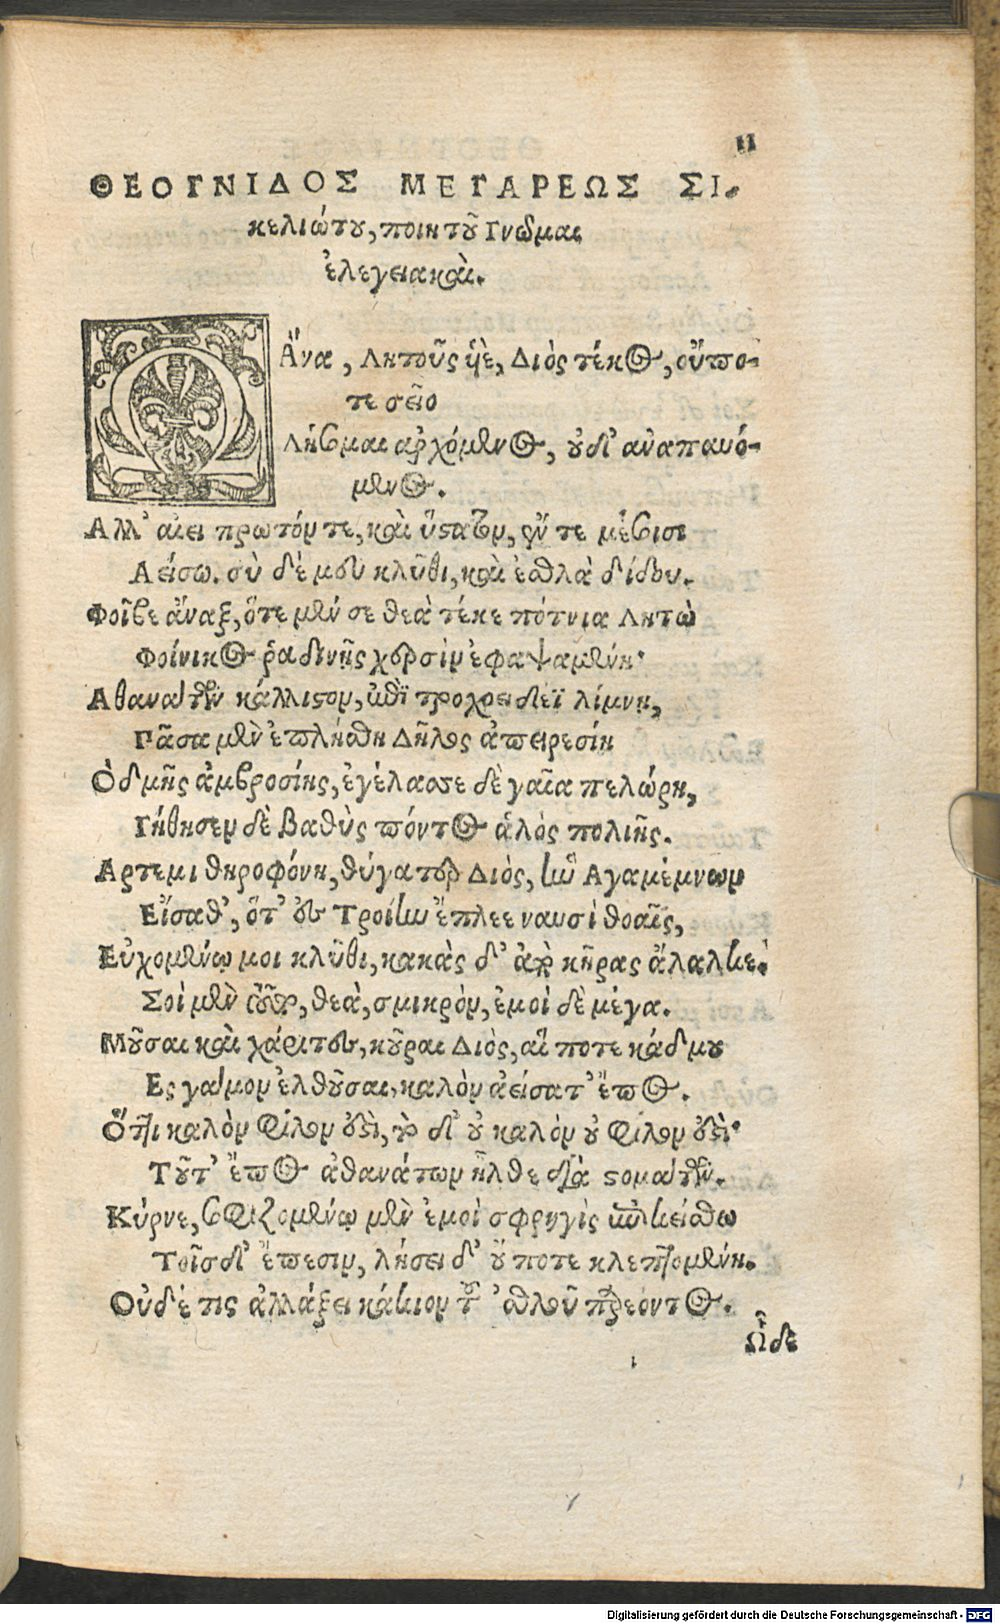 11
ΘΕΟΓΝΙΔΟΣ ΜΕΓΑΡΕΩΣ ΣΙ-
κελιώτου, ποιητοῦ Γνῶμαι
ἐλεγειακαὶ.
Ὦ Ἄνα, Λητοῦς ὑὲ, Διὸς τέκος, οὔπο-
τε σεῖο
Λήσομαι ἀρχόμενος, οὐδ' ἀναπαυό-
μενος.
Αλλ' αἰεὶ πρωτόν τε, καὶ ὕστατον, ἔν τε μέσοισι
Αείσω. σὺ δέ μου κλῦθι, καὶ ἐσθλὰ δίδου.
Φοῖβε ἄναξ, ὅτε μέν σε θεὰ τέκε πότνια Λητὼ
Φοίνικος ῥαδινῇς χερσὶν ἐφαψαμένη·
Αθανάτων κάλλιστον, ἐπὶ τροχοειδέϊ λίμνῃ,
Πᾶσα μὲν ἐπλήσθη Δῆλος ἀπειρεσίη
Ὀδμῆς ἀμβροσίης, ἐγέλασσε δὲ γαῖα πελώρη,
Γήθησεν δὲ βαθὺς πόντος ἁλὸς πολιῆς.
Αρτεμι θηροφόνη, θύγατερ Διὸς, ἣν Αγαμέμνων
Εἵσαθ', ὅτ' ἐς Τροίην ἔπλεε ναυσὶ θοαῖς,
Εὐχομένῳ μοι κλῦθι, κακὰς δ' ἀπὸ κῆρας ἄλαλκε.
Σοὶ μὲν τοῦτο, θεὰ, σμικρόν, ἐμοὶ δὲ μέγα.
Μοῦσαι καὶ χάριτες, κοῦραι Διὸς, αἵ ποτε κάδμου
Ες γάμον ἐλθοῦσαι, καλὸν ἀείσατ' ἔπος.
Ὅττι καλὸν φίλον ἐστὶ, τὸ δ' οὐ καλὸν οὐ φίλον ἐστὶ·
Τοῦτ' ἔπος ἀθανάτων ἦλθε διὰ στομάτων.
Κύρνε, σοφιζομένῳ μὲν ἐμοὶ σφρηγὶς ἐπικείσθω
Τοῖσδ' ἔπεσιν, λήσει δ' οὔ ποτε κλεπτομένη.
Οὐδέ τις ἀλλάξει κάκιον τοῦ 'σθλοῦ παρεόντος.
Ὧδε